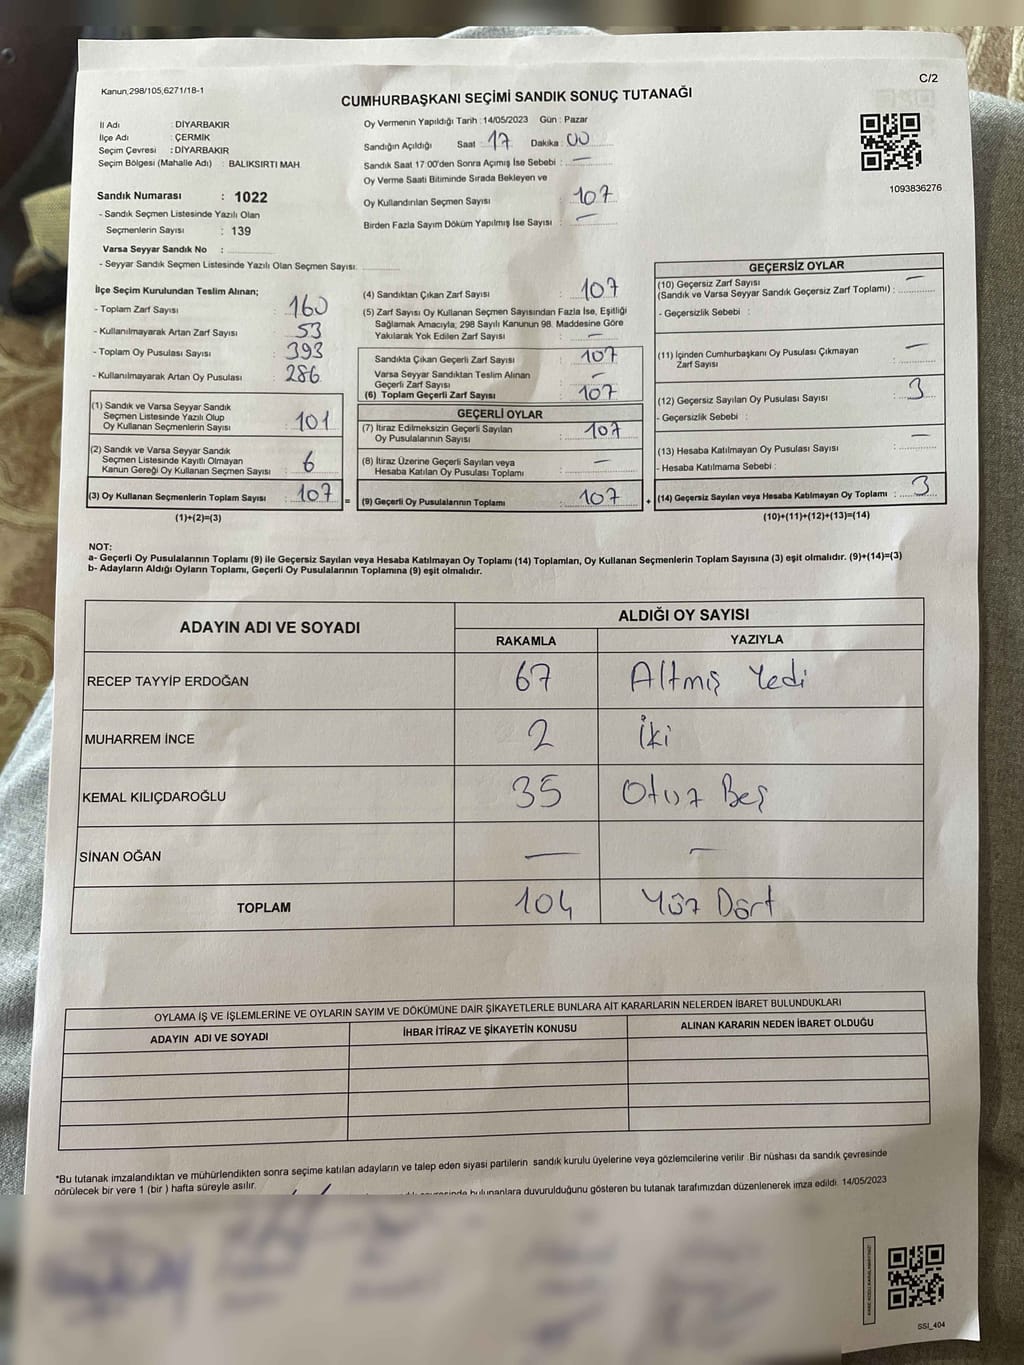 C/2
Kanun,298/105,6271/18-1
CUMHURBAŞKANI SEÇİMİ SANDIK SONUÇ TUTANAĞI
İl Adı : DİYARBAKIR
İlçe Adı : ÇERMİK
Seçim Çevresi : DİYARBAKIR
Seçim Bölgesi (Mahalle Adı) : BALIKSIRTI MAH.
Oy Vermenin Yapıldığı Tarih : 14/05/2023 Gün : Pazar
Sandığın Açıldığı Saat : 17 Dakika : 00
Sandık Saat 17:00'den Sonra Açımış İse Sebebi : —
Oy Verme Saati Bitiminde Sırada Bekleyen ve
Oy Kullandırılan Seçmen Sayısı : 107
Birden Fazla Sayım Döküm Yapılmış İse Sayısı : —
1093836276
Sandık Numarası : 1022
- Sandık Seçmen Listesinde Yazılı Olan
Seçmenlerin Sayısı : 139
Varsa Seyyar Sandık No :
- Seyyar Sandık Seçmen Listesinde Yazılı Olan Seçmen Sayısı:
İlçe Seçim Kurulundan Teslim Alınan;
- Toplam Zarf Sayısı : 160
- Kullanılmayarak Artan Zarf Sayısı : 53
- Toplam Oy Pusulası Sayısı : 393
- Kullanılmayarak Artan Oy Pusulası : 286
(1) Sandık ve Varsa Seyyar Sandık
Seçmen Listesinde Yazılı Olup
Oy Kullanan Seçmenlerin Sayısı : 101
(2) Sandık ve Varsa Seyyar Sandık
Seçmen Listesinde Kayıtlı Olmayan
Kanun Gereği Oy Kullanan Seçmen Sayısı : 6
(3) Oy Kullanan Seçmenlerin Toplam Sayısı : 107 =
(1)+(2)=(3)
(4) Sandıktan Çıkan Zarf Sayısı : 107
(5) Zarf Sayısı Oy Kullanan Seçmen Sayısından Fazla İse, Eşitliği
Sağlamak Amacıyla; 298 Sayılı Kanunun 98. Maddesine Göre
Yakılarak Yok Edilen Zarf Sayısı : —
Sandıkta Çıkan Geçerli Zarf Sayısı : 107
Varsa Seyyar Sandıktan Teslim Alınan
Geçerli Zarf Sayısı : —
(6) Toplam Geçerli Zarf Sayısı : 107
GEÇERLİ OYLAR
(7) İtiraz Edilmeksizin Geçerli Sayılan
Oy Pusulalarının Sayısı : 107
(8) İtiraz Üzerine Geçerli Sayılan veya
Hesaba Katılan Oy Pusulası Toplamı : —
(9) Geçerli Oy Pusulalarının Toplamı : 107 +
GEÇERSİZ OYLAR
(10) Geçersiz Zarf Sayısı
(Sandık ve Varsa Seyyar Sandık Geçersiz Zarf Toplamı) : —
- Geçersizlik Sebebi :
(11) İçinden Cumhurbaşkanı Oy Pusulası Çıkmayan
Zarf Sayısı : —
(12) Geçersiz Sayılan Oy Pusulası Sayısı : 3
- Geçersizlik Sebebi :
(13) Hesaba Katılmayan Oy Pusulası Sayısı : —
- Hesaba Katılmama Sebebi :
(14) Geçersiz Sayılan veya Hesaba Katılmayan Oy Toplamı : 3
(10)+(11)+(12)+(13)=(14)
NOT:
a- Geçerli Oy Pusulalarının Toplamı (9) ile Geçersiz Sayılan veya Hesaba Katılmayan Oy Toplamı (14) Toplamları, Oy Kullanan Seçmenlerin Toplam Sayısına (3) eşit olmalıdır. (9)+(14)=(3)
b- Adayların Aldığı Oyların Toplamı, Geçerli Oy Pusulalarının Toplamına (9) eşit olmalıdır.
ADAYIN ADI VE SOYADI ALDIĞI OY SAYISI
RAKAMLA YAZIYLA
RECEP TAYYİP ERDOĞAN 67 Altmış Yedi
MUHARREM İNCE 2 İki
KEMAL KILIÇDAROĞLU 35 Otuz Beş
SİNAN OĞAN — —
TOPLAM 104 Yüz Dört
OYLAMA İŞ VE İŞLEMLERİNE VE OYLARIN SAYIM VE DÖKÜMÜNE DAİR ŞİKAYETLERLE BUNLARA AİT KARARLARIN NELERDEN İBARET BULUNDUKLARI
ADAYIN ADI VE SOYADI İHBAR İTİRAZ VE ŞİKAYETİN KONUSU ALINAN KARARIN NEDEN İBARET OLDUĞU
*Bu tutanak imzalandıktan ve mühürlendikten sonra seçime katılan adayların ve talep eden siyasi partilerin sandık kurulu üyelerine veya gözlemcilerine verilir .Bir nüshası da sandık çevresinde
görülecek bir yere 1 (bir ) hafta süreyle asılır. bulunanlara duyurulduğunu gösteren bu tutanak tarafımızdan düzenlenerek imza edildi. 14/05/2023
SSI_404